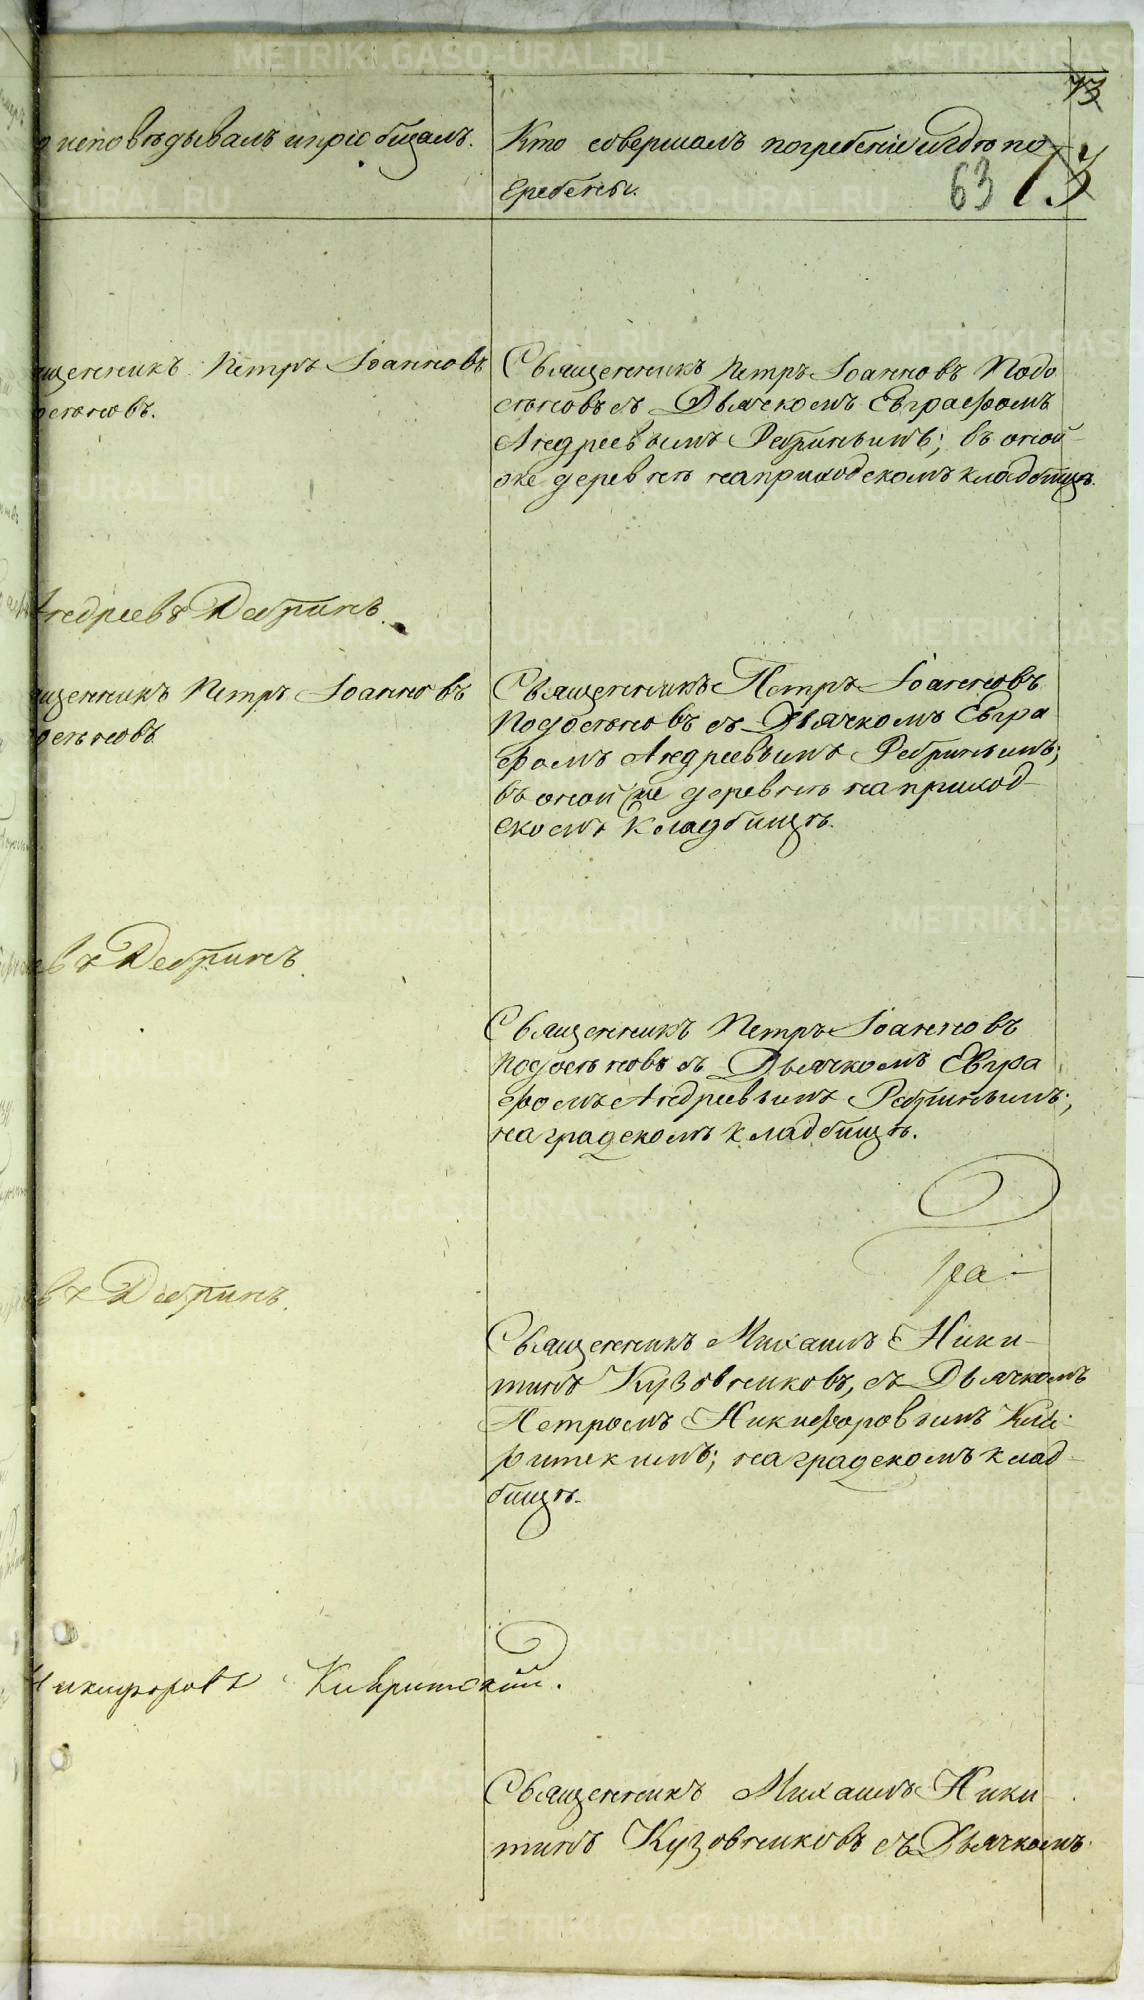 исповѣдывалъ и пріобщалъ.
Кто совершалъ погребеніе и гдѣ по
гребены.
73
63 73
щенникъ Петръ Іоанновъ
Священникъ Петръ Іоанновъ Подо
сеновъ съ Дьячкомъ Евграфомъ
Андреевымъ Ребринымъ; въ оной
же деревнѣ на приходскомъ кладбищѣ.
Андреевъ Ребринъ.
щенникъ Петръ Іоанновъ
Священникъ Петръ Іоанновъ
Подосеновъ съ Дьячкомъ Евгра
фомъ Андреевымъ Ребринымъ;
въ оной же деревнѣ на приход
скомъ кладбищѣ.
въ Ребринъ.
Священникъ Петръ Іоанновъ
Подосеновъ съ Дьячкомъ Евгра
фомъ Андреевымъ Ребринымъ;
на градскомъ кладбищѣ.
ра
въ Ребринъ.
Священникъ Михаилъ Ники
тинъ Кузовниковъ, съ Дьячкомъ
Петромъ Никифоровымъ
на градскомъ клад
бищѣ.
Никифоровъ Кивритскій.
Священникъ Михаилъ Ники
тинъ Кузовниковъ съ Дьячкомъ
METRIKI.GASO-URAL.RU